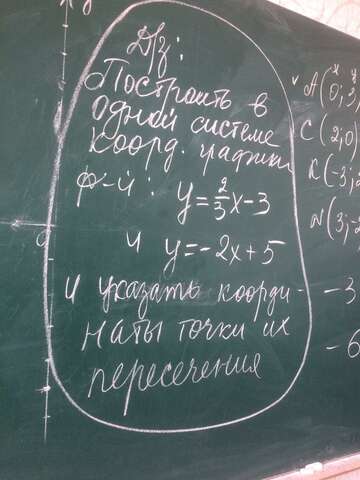 Д/з:
Построить в
одной системе
коорд. графики
ф-й: y=2/3x-3
и y=-2x+5
и указать коорди-
наты точки их
пересечения
y
0
x y
A(0;3
C(2;0)
K(-3;2
N(3;-2
-3
-6